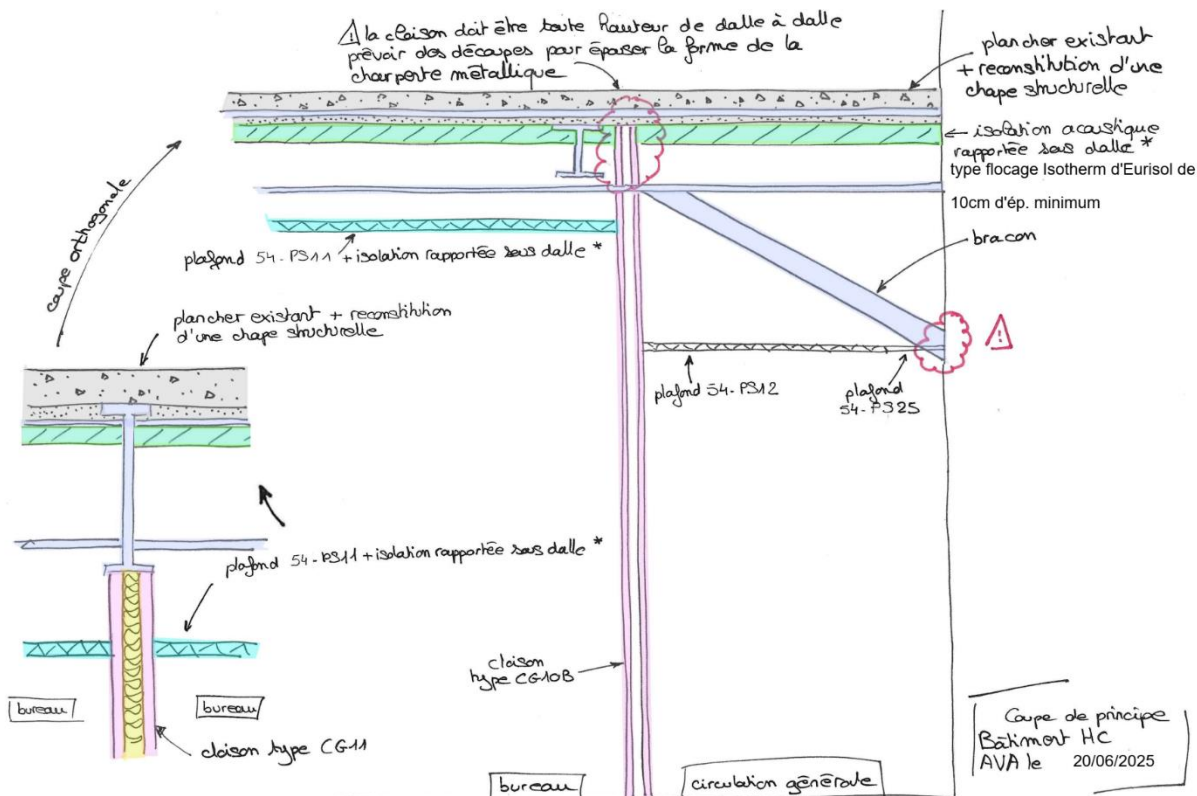 ⚠ la cloison doit être toute hauteur de dalle à dalle
prévoir des découpes pour épouser la forme de la
charpente métallique
plancher existant
+ reconstitution d'une
chape structurelle
← isolation acoustique
rapportée sous dalle *
type flocage Isotherm d'Eurisol de
10cm d'ép. minimum
bracon
coupe orthogonale
plafond 54-PS11 + isolation rapportée sous dalle *
plancher existant + reconstitution
d'une chape structurelle
plafond 54-PS12
plafond
54-PS25
plafond 54-PS11 + isolation rapportée sous dalle *
cloison
type CG10B
bureau
bureau
cloison type CG11
bureau
circulation générale
Coupe de principe
Bâtiment HC
AVA le 20/06/2025